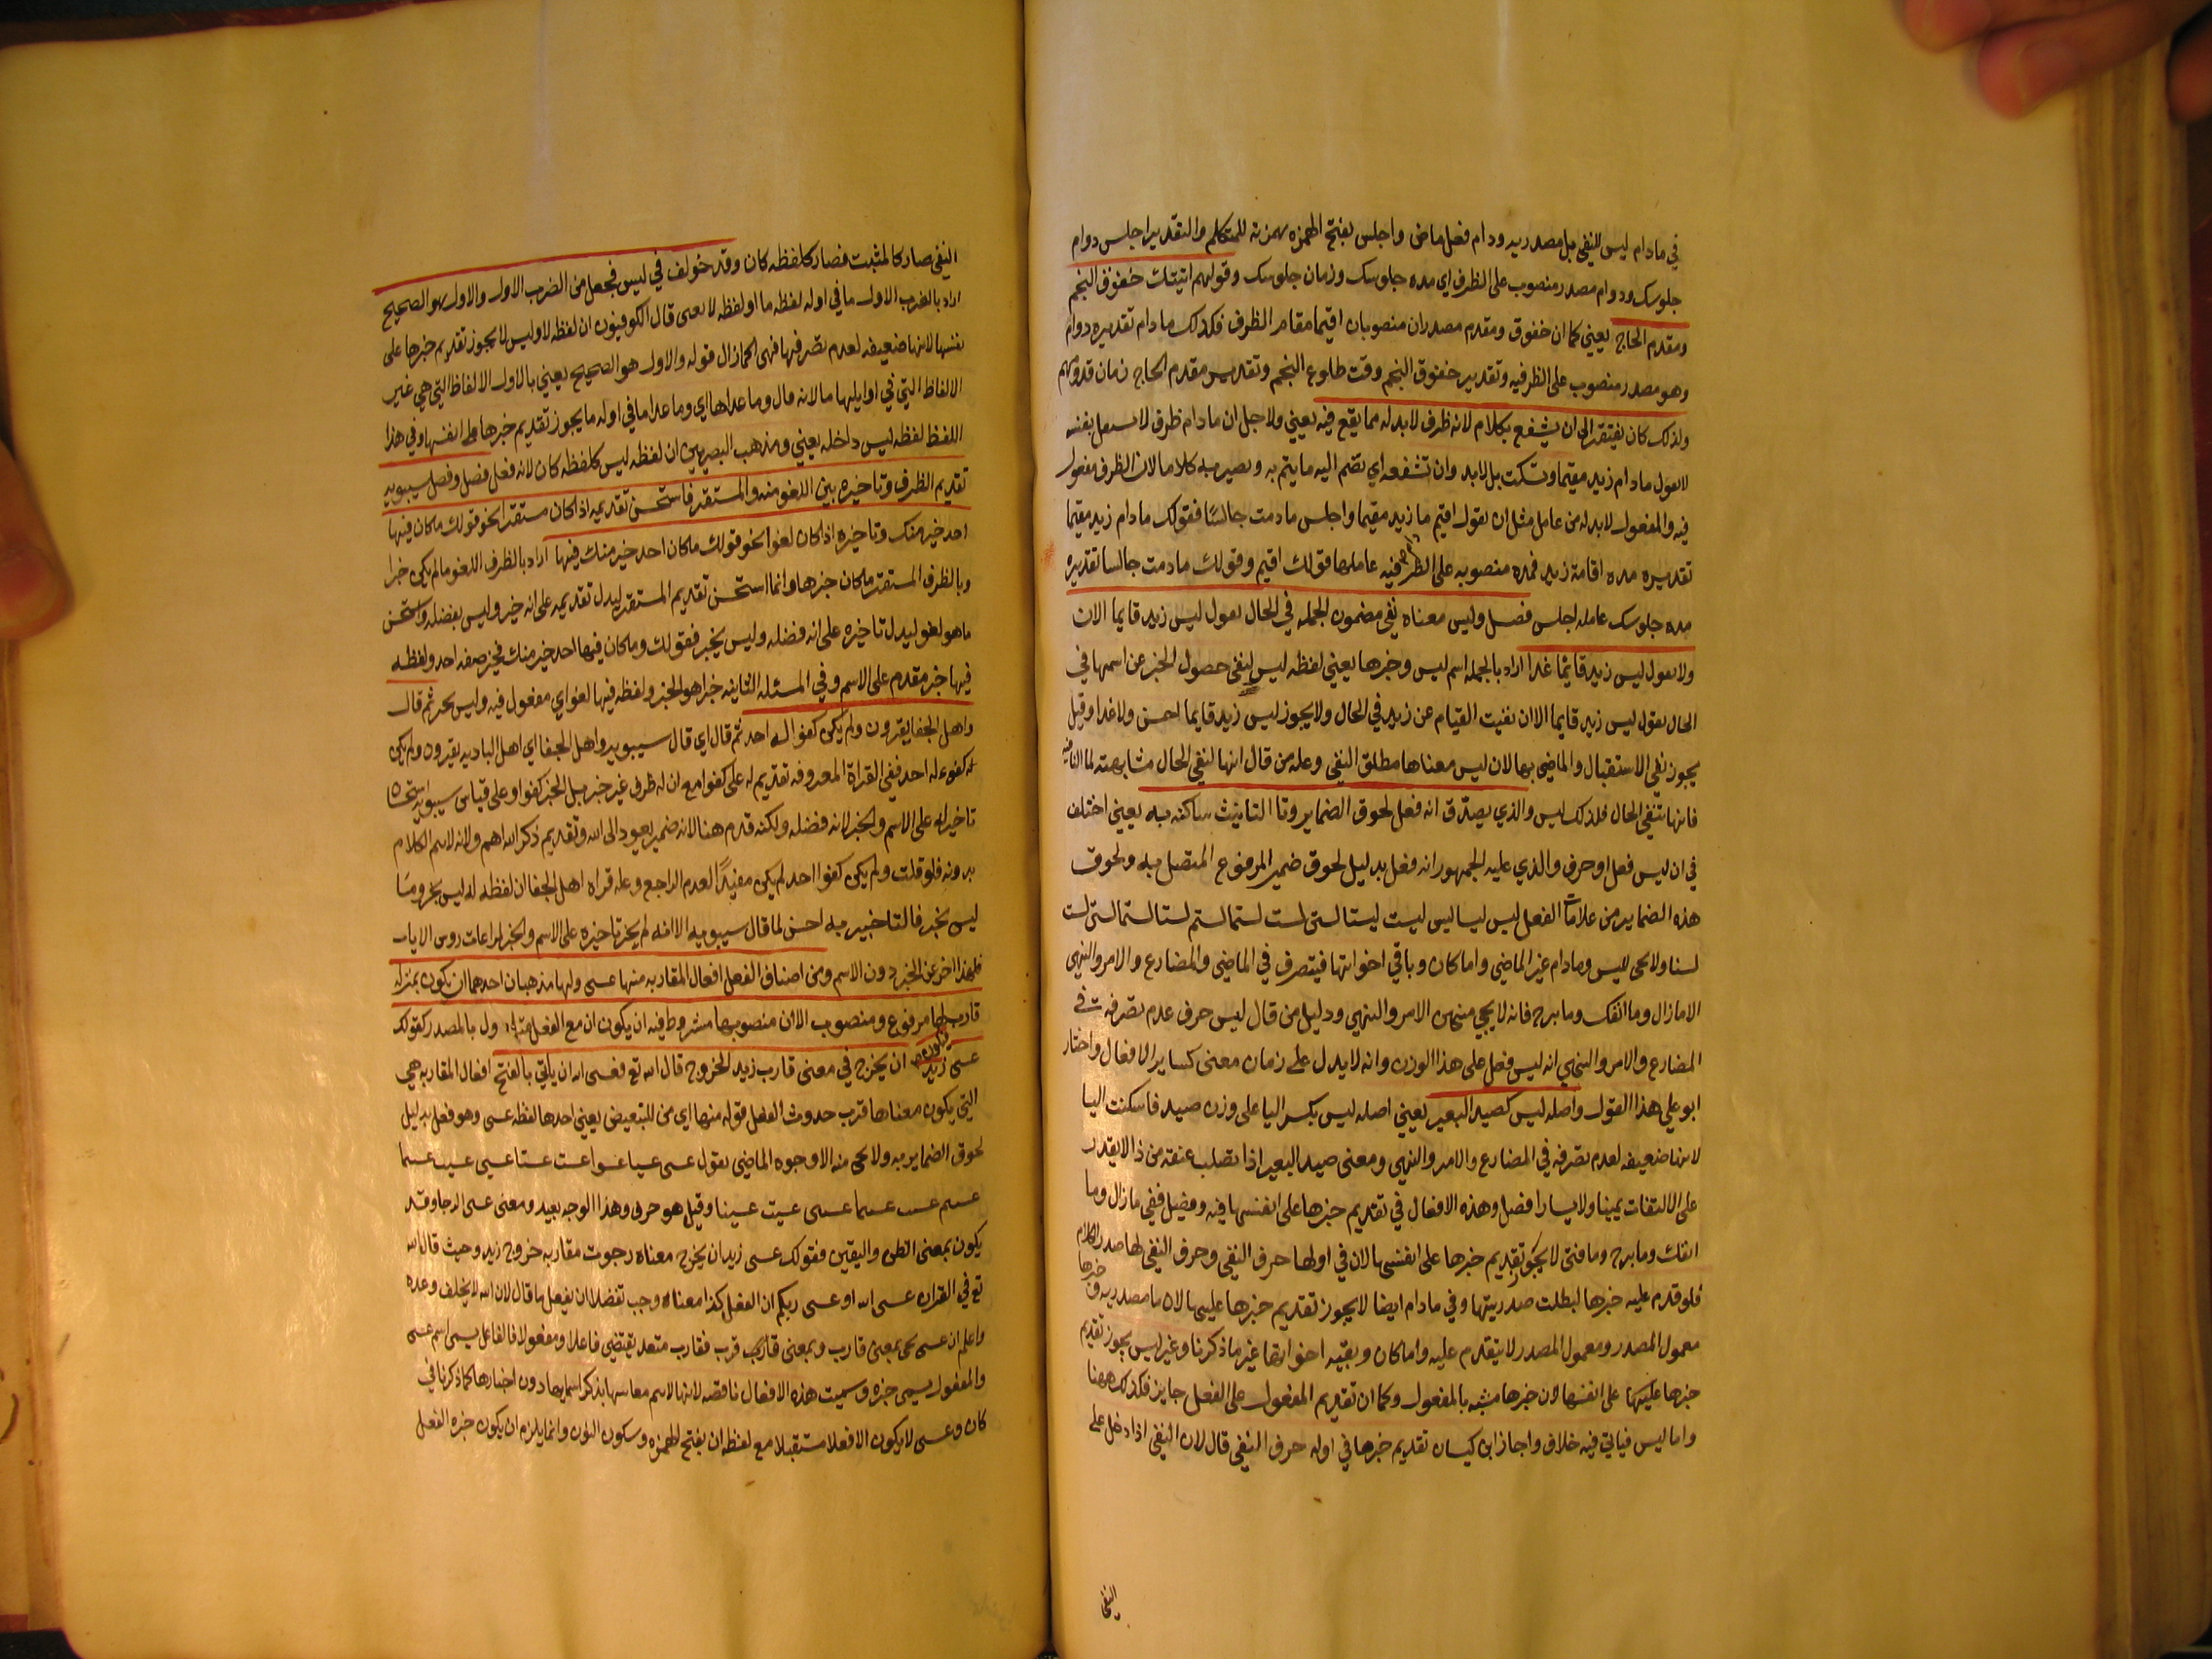 في مادام ليس للنفي بل مصدريه ودام فعل ماض واجلس بفتح الهمزه بهمزة للمتكلم والتقدير اجلس دوام
جلوسك ودوام مصدر منصوب على الظرف اي مده جلوسك وزمان جلوسك وقولهم اتيتك خفوق النجم
ومقدم الحاج يعني كما ان خفوق ومقدم مصدران منصوبان اقيما مقام الظرف فكذلك مادام تقديره دوام
وهو مصدر منصوب على الظرفيه وتقدير خفوق النجم وقت طلوع النجم وتقدير مقدم الحاج زمان قدومهم
ولذلك كان يفتقر الى ان يشفع بكلام لانه ظرف لابد له مما يقع فيه يعني ولاجل ان مادام ظرف لا يستعمل بنفسه
لا يقول مادام زيد مقيما وتسكت بل لابد وان تشفعه اي تضم اليه ما يتم به ويصير به كلاما لان الظرف مفعول
فيه والمفعول لابد له من عامل مثل ان يقول اقيم ما زيد مقيما واجلس مادمت جالسًا فقولك مادام زيد مقيما
تقديره مده اقامة زيد فمده منصوبه على الظرفيه عاملها قولك اقيم وقولك مادمت جالسا تقديره
مده جلوسك عامله اجلس فصل وليس معناه نفي مضمون الجمله في الحال يقول ليس زيد قايما الان
ولا يقول ليس زيد قائمًا غدا اراد بالجمله اسم ليس وخبرها يعني لفظه ليس لنفي حصول الخبر عن اسمها في
الحال يقول ليس زيد قايما الان نفيت القيام عن زيد في الحال ولا يجوز ليس زيد قايما امس ولا غدا وقيل
يجوز نفي الاستقبال والماضي بها لان ليس معناها مطلق النفي وعله من قال انها لنفي الحال مشابهته لما النافيه
فانها تنفي الحال فلذلك ليس والذي يصدّق انه فعل لحوق الضماير وتا التانيث ساكنه به يعني اختلف
في ان ليس فعل او حرف والذي عليه الجمهور انه فعل بدليل لحوق ضمير المرفوع المتصل به ولحوق
هذه الضماير من علامات الفعل ليس ليسا ليس ليست ليستا لسن لست لستما لستم لست لستما لستن لست
لسنا ولا يجى لليس ومادام غير الماضي واما كان وباقي اخواتها فيتصرف في الماضي والمضارع والامر والنهي
الا مازال وما انفك وما برح فانه لا يجي منهن الامر والنهي ودليل من قال ليس حرف عدم تصرفه في
المضارع والامر والنهي انه ليس فعل على هذا الوزن وانه لا يدل على زمان معنى كساير الافعال واختار
ابو علي هذا القول واصله ليس كصيد البعير يعني اصله ليس بكسر اليا على وزن صيد فاسكنت اليا
لانها ضعيفه لعدم تصرفه في المضارع والامر والنهي ومعنى صيد البعير اذا تصلب عنقه من ذا لا يقدر
على الالتفات يمينا ولا يسارا فصل وهذه الافعال في تقديم خبرها على انفسها فيه وفصل ففي مازال وما
انفك وما برح وما فتئ لا يجوز تقديم خبرها على انفسها لان في اولها حرف النفي وحرف النفي لها صدر الكلام
فلو قدم عليه خبرها لبطلت صدريتها وفي مادام ايضا لا يجوز تقديم خبرها عليها لان ما مصدريه وخبرها
معمول المصدر ومعمول المصدر لا يتقدم عليه واما كان وبقيه اخواتها غير ما ذكرنا وغير ليس يجوز تقديم
خبرها عليها على انفسها لان خبرها مشبه بالمفعول وكما ان تقديم المفعول على الفعل جايز فكذلك ههنا
واما ليس فياتي فيه خلاف واجاز ابن كيسان تقديم خبرها في اوله حرف النفي قال لان النفي اذا دخل على
النفي
النفي صار كالمثبت فصار كلفظه كان وقد خولف في ليس فجعل من الضرب الاول والاول هو الصحيح
اراد بالضرب الاول ما في اوله لفظه ما او لفظه لا يعنى قال الكوفيون ان لفظه لاوليس لا يجوز تقديم خبرها على
نفسها لانها ضعيفه لعدم تصرفها فهى كمازال قوله والاول هو الصحيح يعني بالاول الالفاظ التي هي غير
الالفاظ التي في اوايلها ما لانه قال وما عداها اي وما عدا ما في اوله ما يجوز تقديم خبرها على انفسها وفي هذا
اللفظ لفظه ليس داخله يعني ومذهب البصريين ان لفظه ليس كلفظه كان لانه فعل فصل وفصل سيبويه
تقديم الظرف وتاخيره بين اللغو منه والمستقر فاستحسن تقديمه اذا كان مستقرا نحو قولك ما كان فيها
احد خير منك وتاخيره اذا كان لغوا نحو قولك ما كان احد خير منك فيها اراد بالظرف اللغو ما لم يكن خبرا
وبالظرف المستقر ما كان خبرها وانما استحسن تقديم المستقر ليدل تقديمه على انه خبر وليس بفضله واستحسن
ما هو لغو ليدل تاخيره على انه فضله وليس بخبر فقولك وما كان فيها احد خير منك فخير صفه احد ولفظه
فيها خبر مقدم على الاسم وفي المسئله الثانيه خبرا هو الخبر ولفظه فيها لغو اي مفعول فيه وليس بخبر ثم قال
واهل الجفا يقرون ولم يكن كفوا له احد ثم قال اي قال سيبويه واهل الجفا اي اهل الباديه يقرون ولم يكن
له كفوءله احد ففي القراة المعروفه تقديم له على كفوا مع ان له ظرف غير خبر بل الخبر كفوا وعلى قياس سيبويه استحسان
تاخير له على الاسم والخبر لانه فضله ولكنه قدم هنا لانه ضمير يعود الى الله وتقديم ذكر الله اهم ولانه لا يتم الكلام
بدونه فلو قلت ولم يكن كفوا احد لم يكن مفيدًا لعدم الراجع وعله قراه اهل الجفا ان لفظه له ليس بخبر وما
ليس بخبر فالتاخير به احسن لما قال سيبويه الا انه لم يجز تاخيره على الاسم والخبر لمراعات روس الايات
فلهذا اخر عن الخبر دون الاسم ومن اصناف الفعل افعال المقاربه منها عسى ولها مذهبان احدهما ان يكون بمنزله
قارب لها مرفوع ومنصوب الا ان منصوبها مشروط فيه ان يكون ان مع الفعل متاولا بالمصدر كقولك
عسى زيد ان يخرج في معنى قارب زيد الخروج قال الله تع فعسى الله ان ياتي بالفتح افعال المقاربه هي
التي يكون معناها قرب حدوث الفعل قوله منها اي من للتبعيض يعني احدها لفظه عسى وهو فعل بدليل
لحوق الضماير به ولا يجى منه الا وجوه الماضي يقول عسى عسيا عسوا عست عستا عسين عسيت عسيتما
عسيتم عسيت عسيتما عسيتن عسيت عسينا وقيل هو حرف وهذا الوجه بعيد ومعنى عسى الرجا وقد
يكون بمعنى الظن واليقين فقولك عسى زيد ان يخرج معناه رجوت مقاربه خروج زيد وحيث قال الله
تع في القران عسى الله او عسى ربكم ان يفعل كذا معناه وجب تفضلا ان يفعل ما قال لان الله لا يخلف وعده
واعلم ان عسى يجى بمعنى قارب وبمعنى قرب فقارب متعد يقتضي فاعلا ومفعولا فالفاعل يسمى اسم عسى
والمفعول يسمى خبره وسميت هذه الافعال ناقصه لانها لا يتم معانيها بذكر اسمائها دون اخبارها كما ذكرنا في
كان وعسى لا يكون الا فعلا مستقبلا مع لفظه ان بفتح الهمزه وسكون النون وانما يلزم ان يكون خبره الفعل